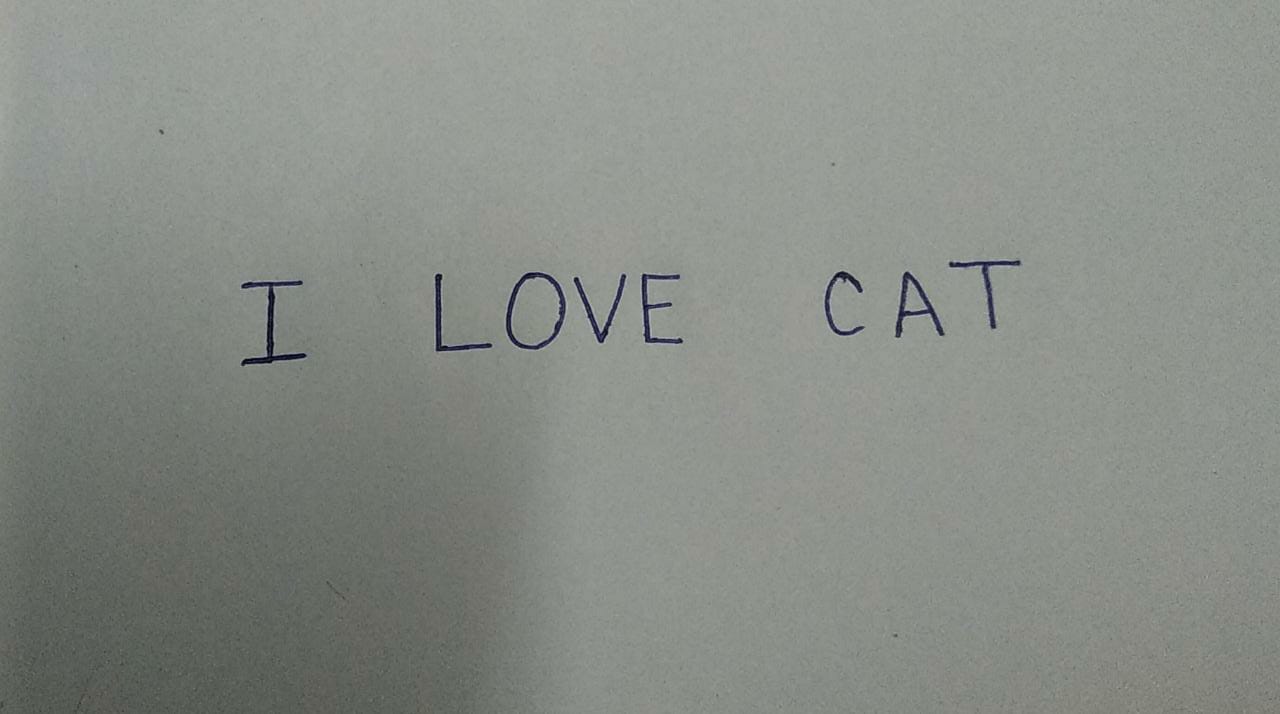 I LOVE CAT